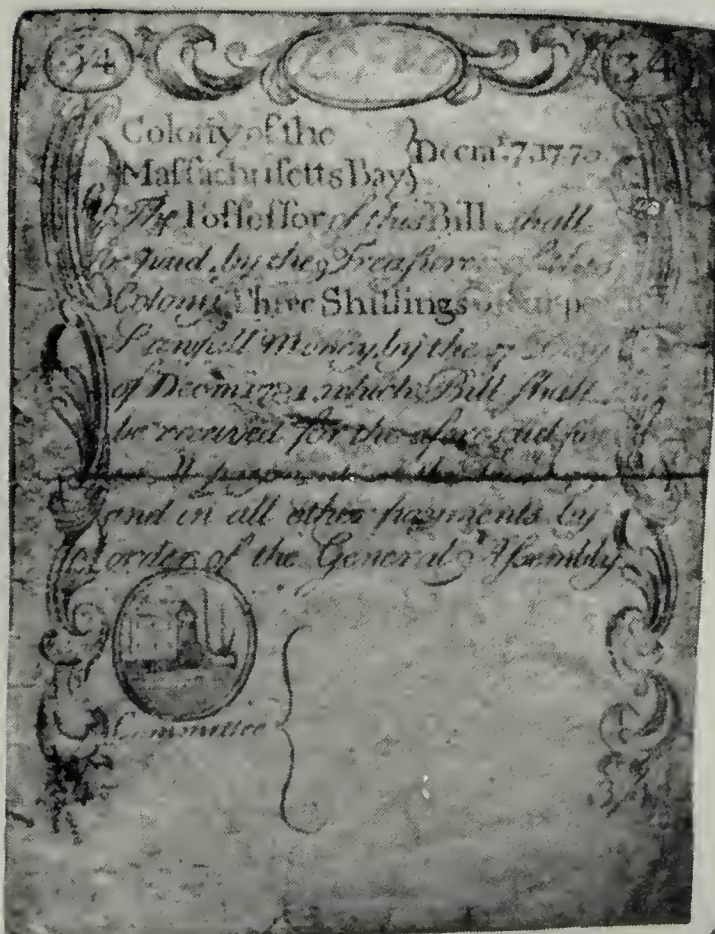 34 34
Colony of the
Maſſachuſetts Bay } Decmr. 7, 177
The Poſſeſſor of this Bill ſhall
be paid, by the Treaſurer
Colony Three Shillings
Lawfull Money, by the 7 Day
of Decmr. 1781, which Bill ſhall
be received for the aforeſaid
payment
and in all other payments by
order of the General Aſſembly.
Committee